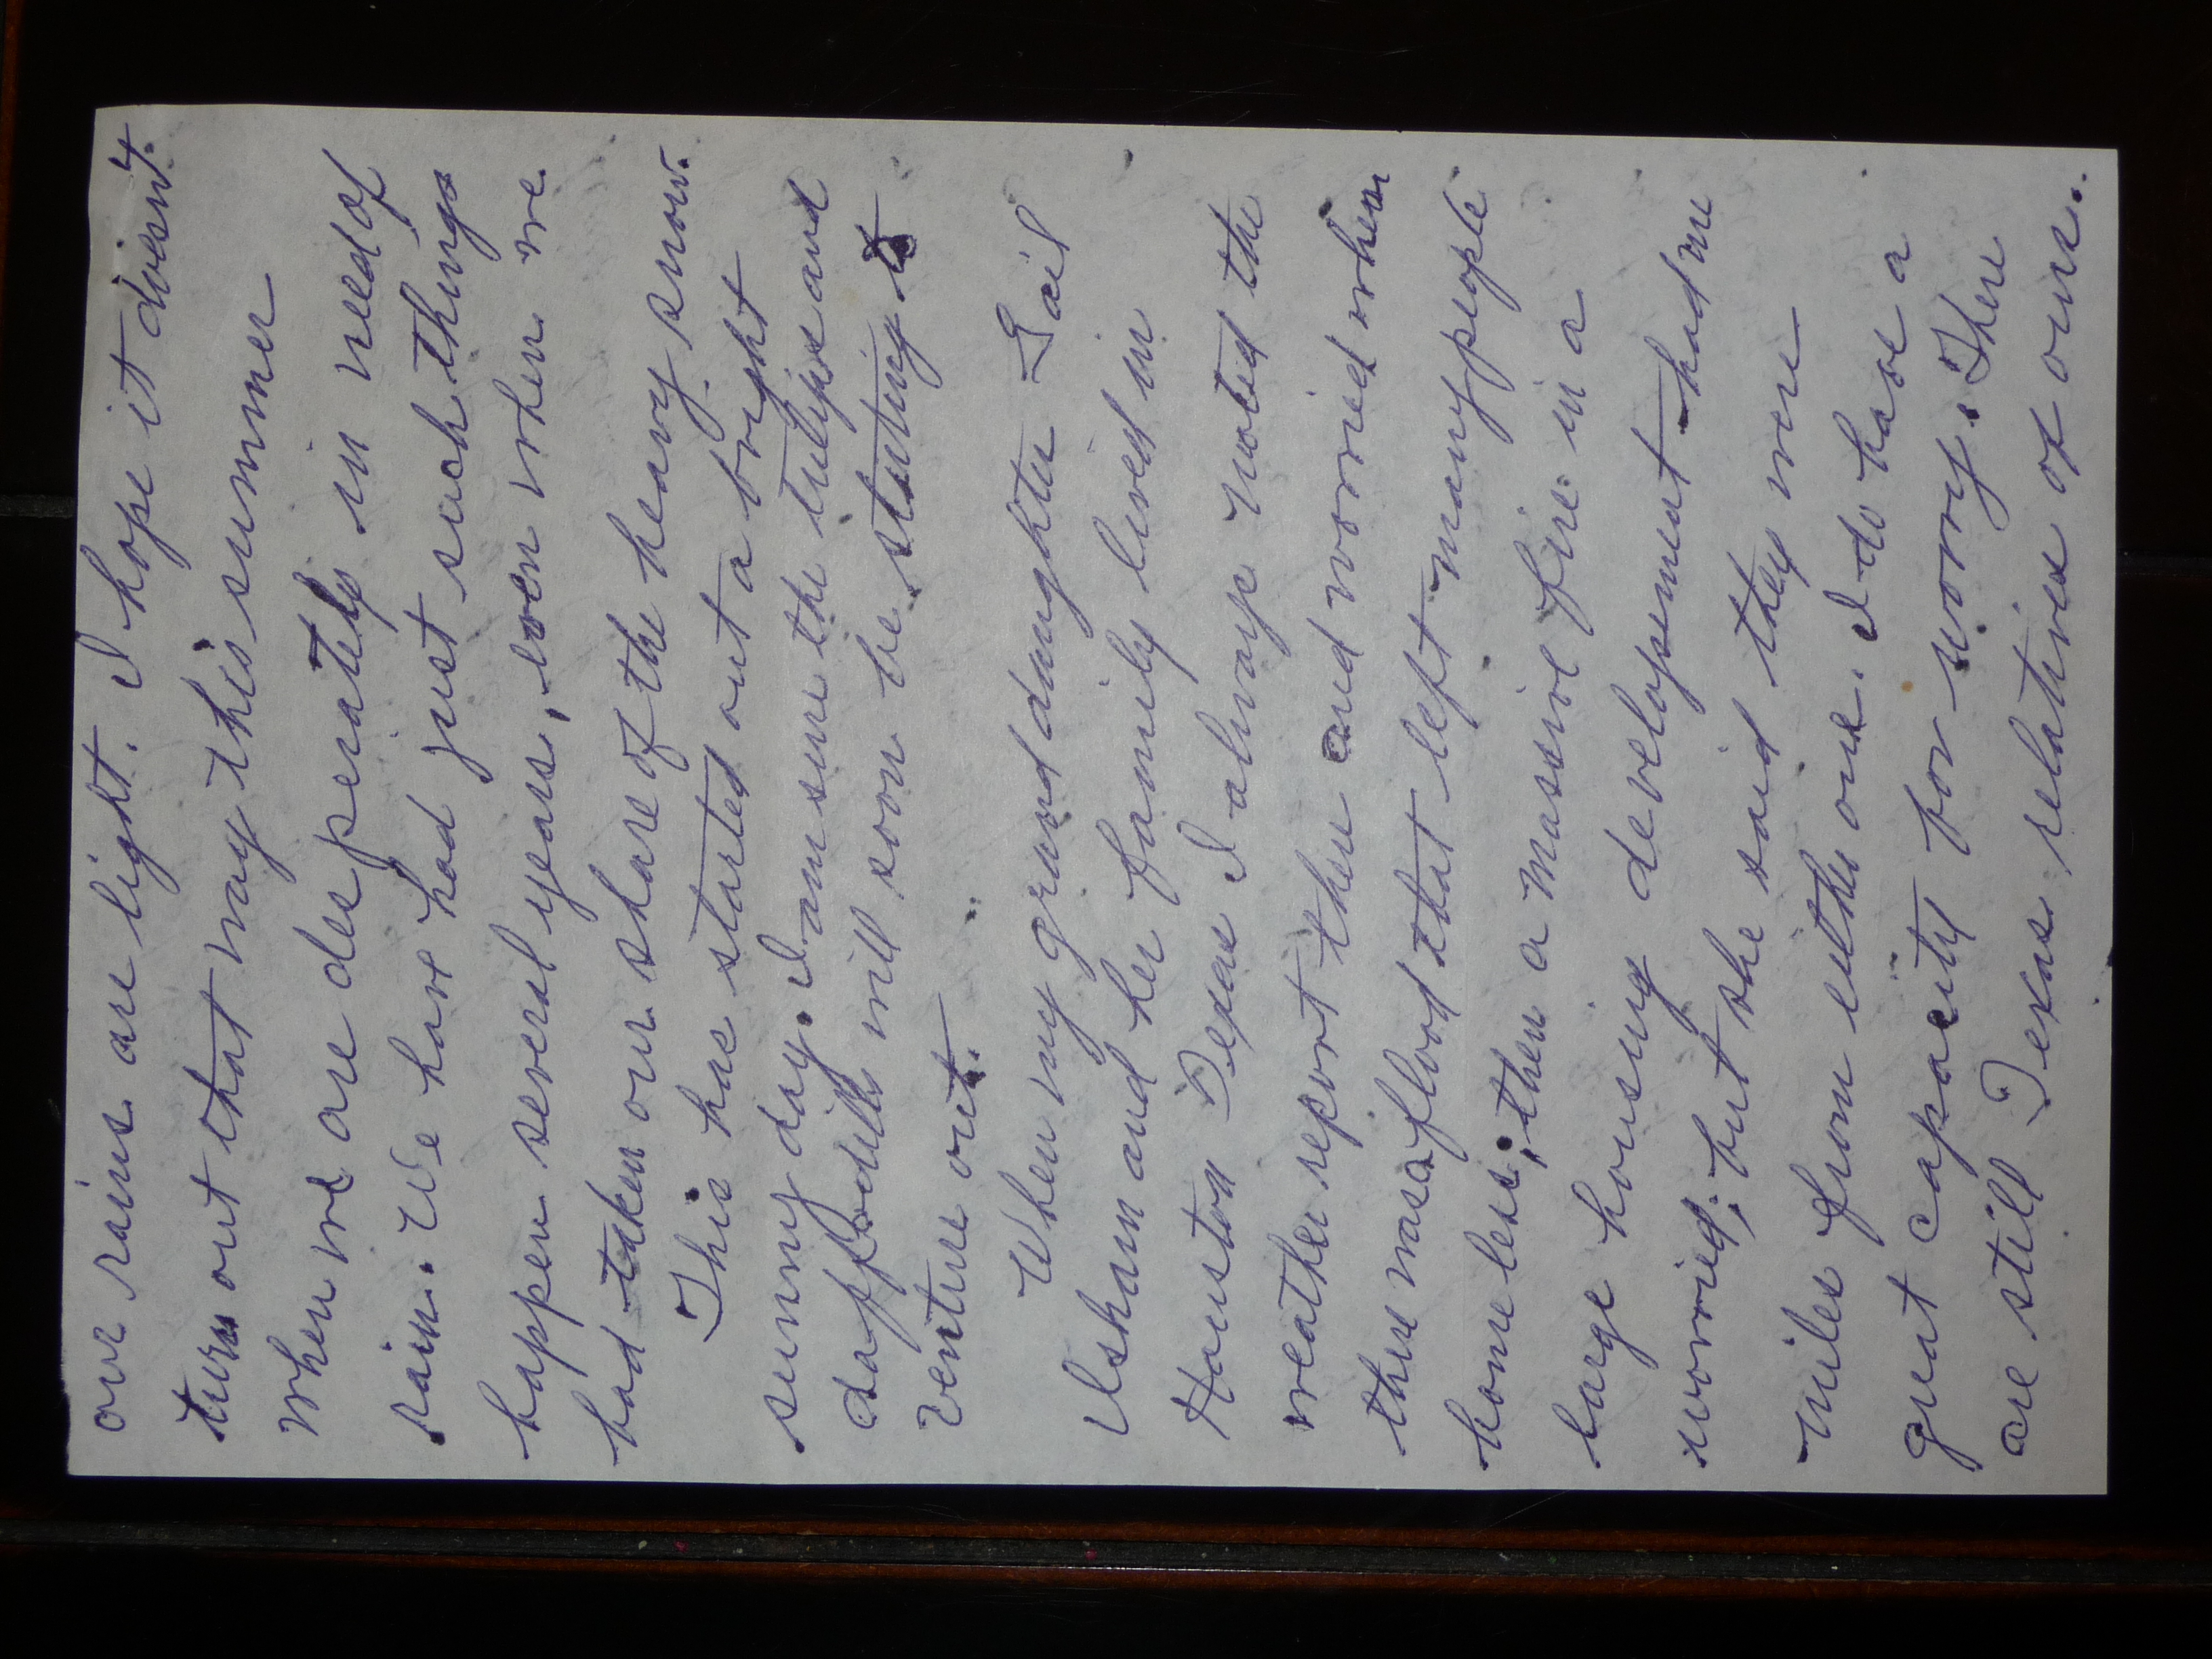 our rains are light. I hope it doesn't
turn out that way this summer
when we are desperately in need of
rain. We have had just such things
happen several years, even when we
had taken our share of the heavy snow.
This has started out a bright
sunny day. I am sure the tulips and
daffodills will soon be starting to
venture out.
When my grand daughter Gail
Isham and her family lived in
Houston Texas I always noted the
weather report there and worried when
there was a flood that left many people
homeless; then a massive fire in a
large housing developement had me
worried; but she said they were
miles from either one. I do have a
great capacity for worry. There
are still Texas relatives of ours.